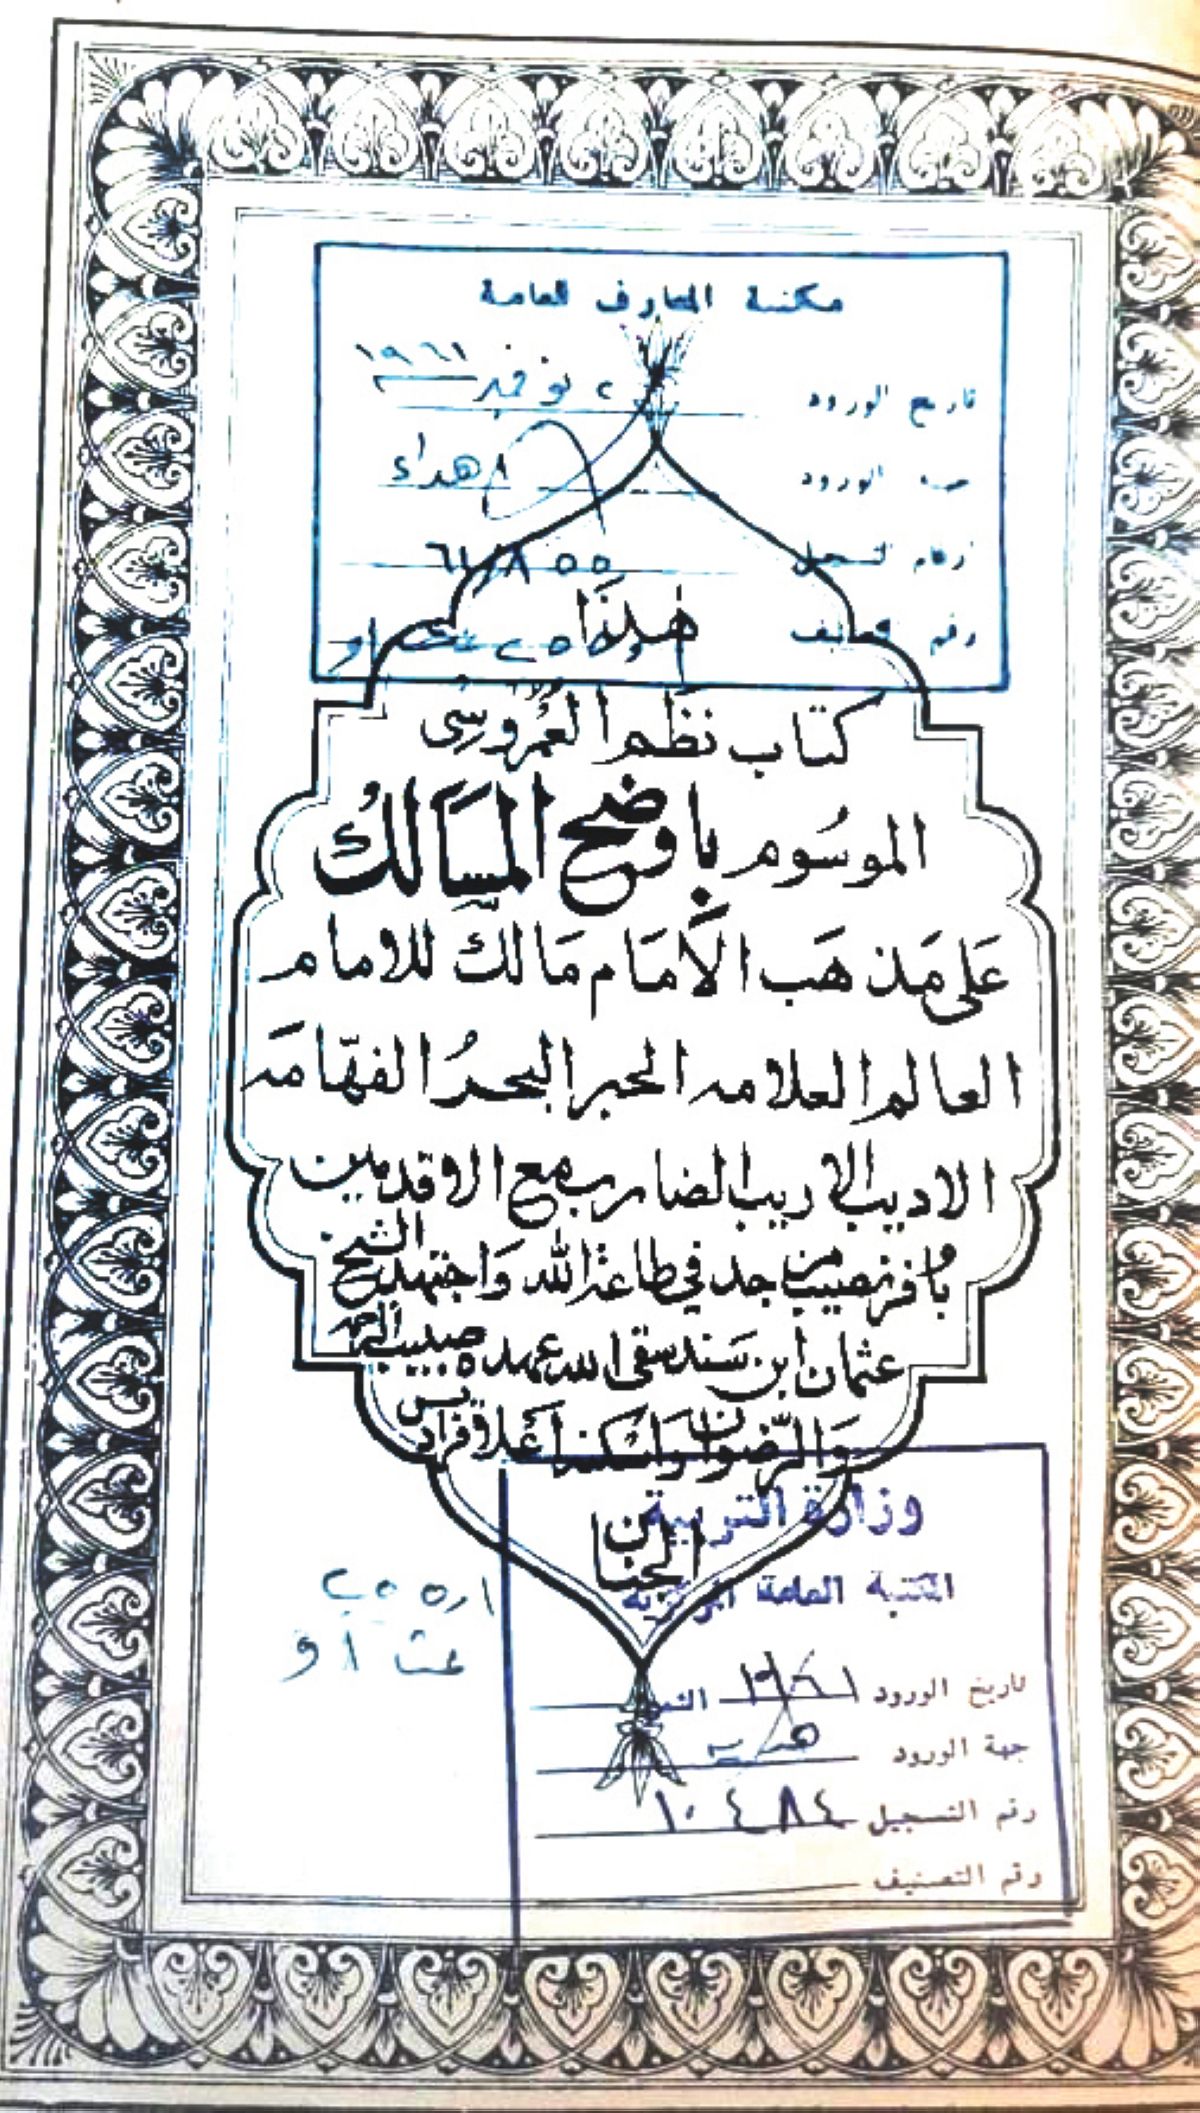 مكتبة المعارف العامة
تاريخ الورود ٢ نوفمبر ١٩٦١
جهة الورود اهداء
ارقام التسجيل ٦١/٨٥٥
رقم
هذا
كتاب نظم العُمروسى
الموسُوم باوضح المسَالكُ
عَلى مَذهَب الامَام مَالك للامام
العالم العلامه الحبر البحرُ الفهّامَه
الاديب الاريب الضارب مع الاقدمين
باوفر نصيب من جد في طاعة الله وَاجتهد الشيخ
عثمان ابن سَند سقى الله عهده صبيب الرحمة
وَالرّضوان وَاسْكنه أعْلا فراديس
الجنان
وزارة التربية
المكتبة العامة المركزية
١ر٢٥٥
عث أو
تاريخ الورود ١٩٦١
جهة الورود هدية
رقم التسجيل ١٠٤٨٤
رقم التصنيف